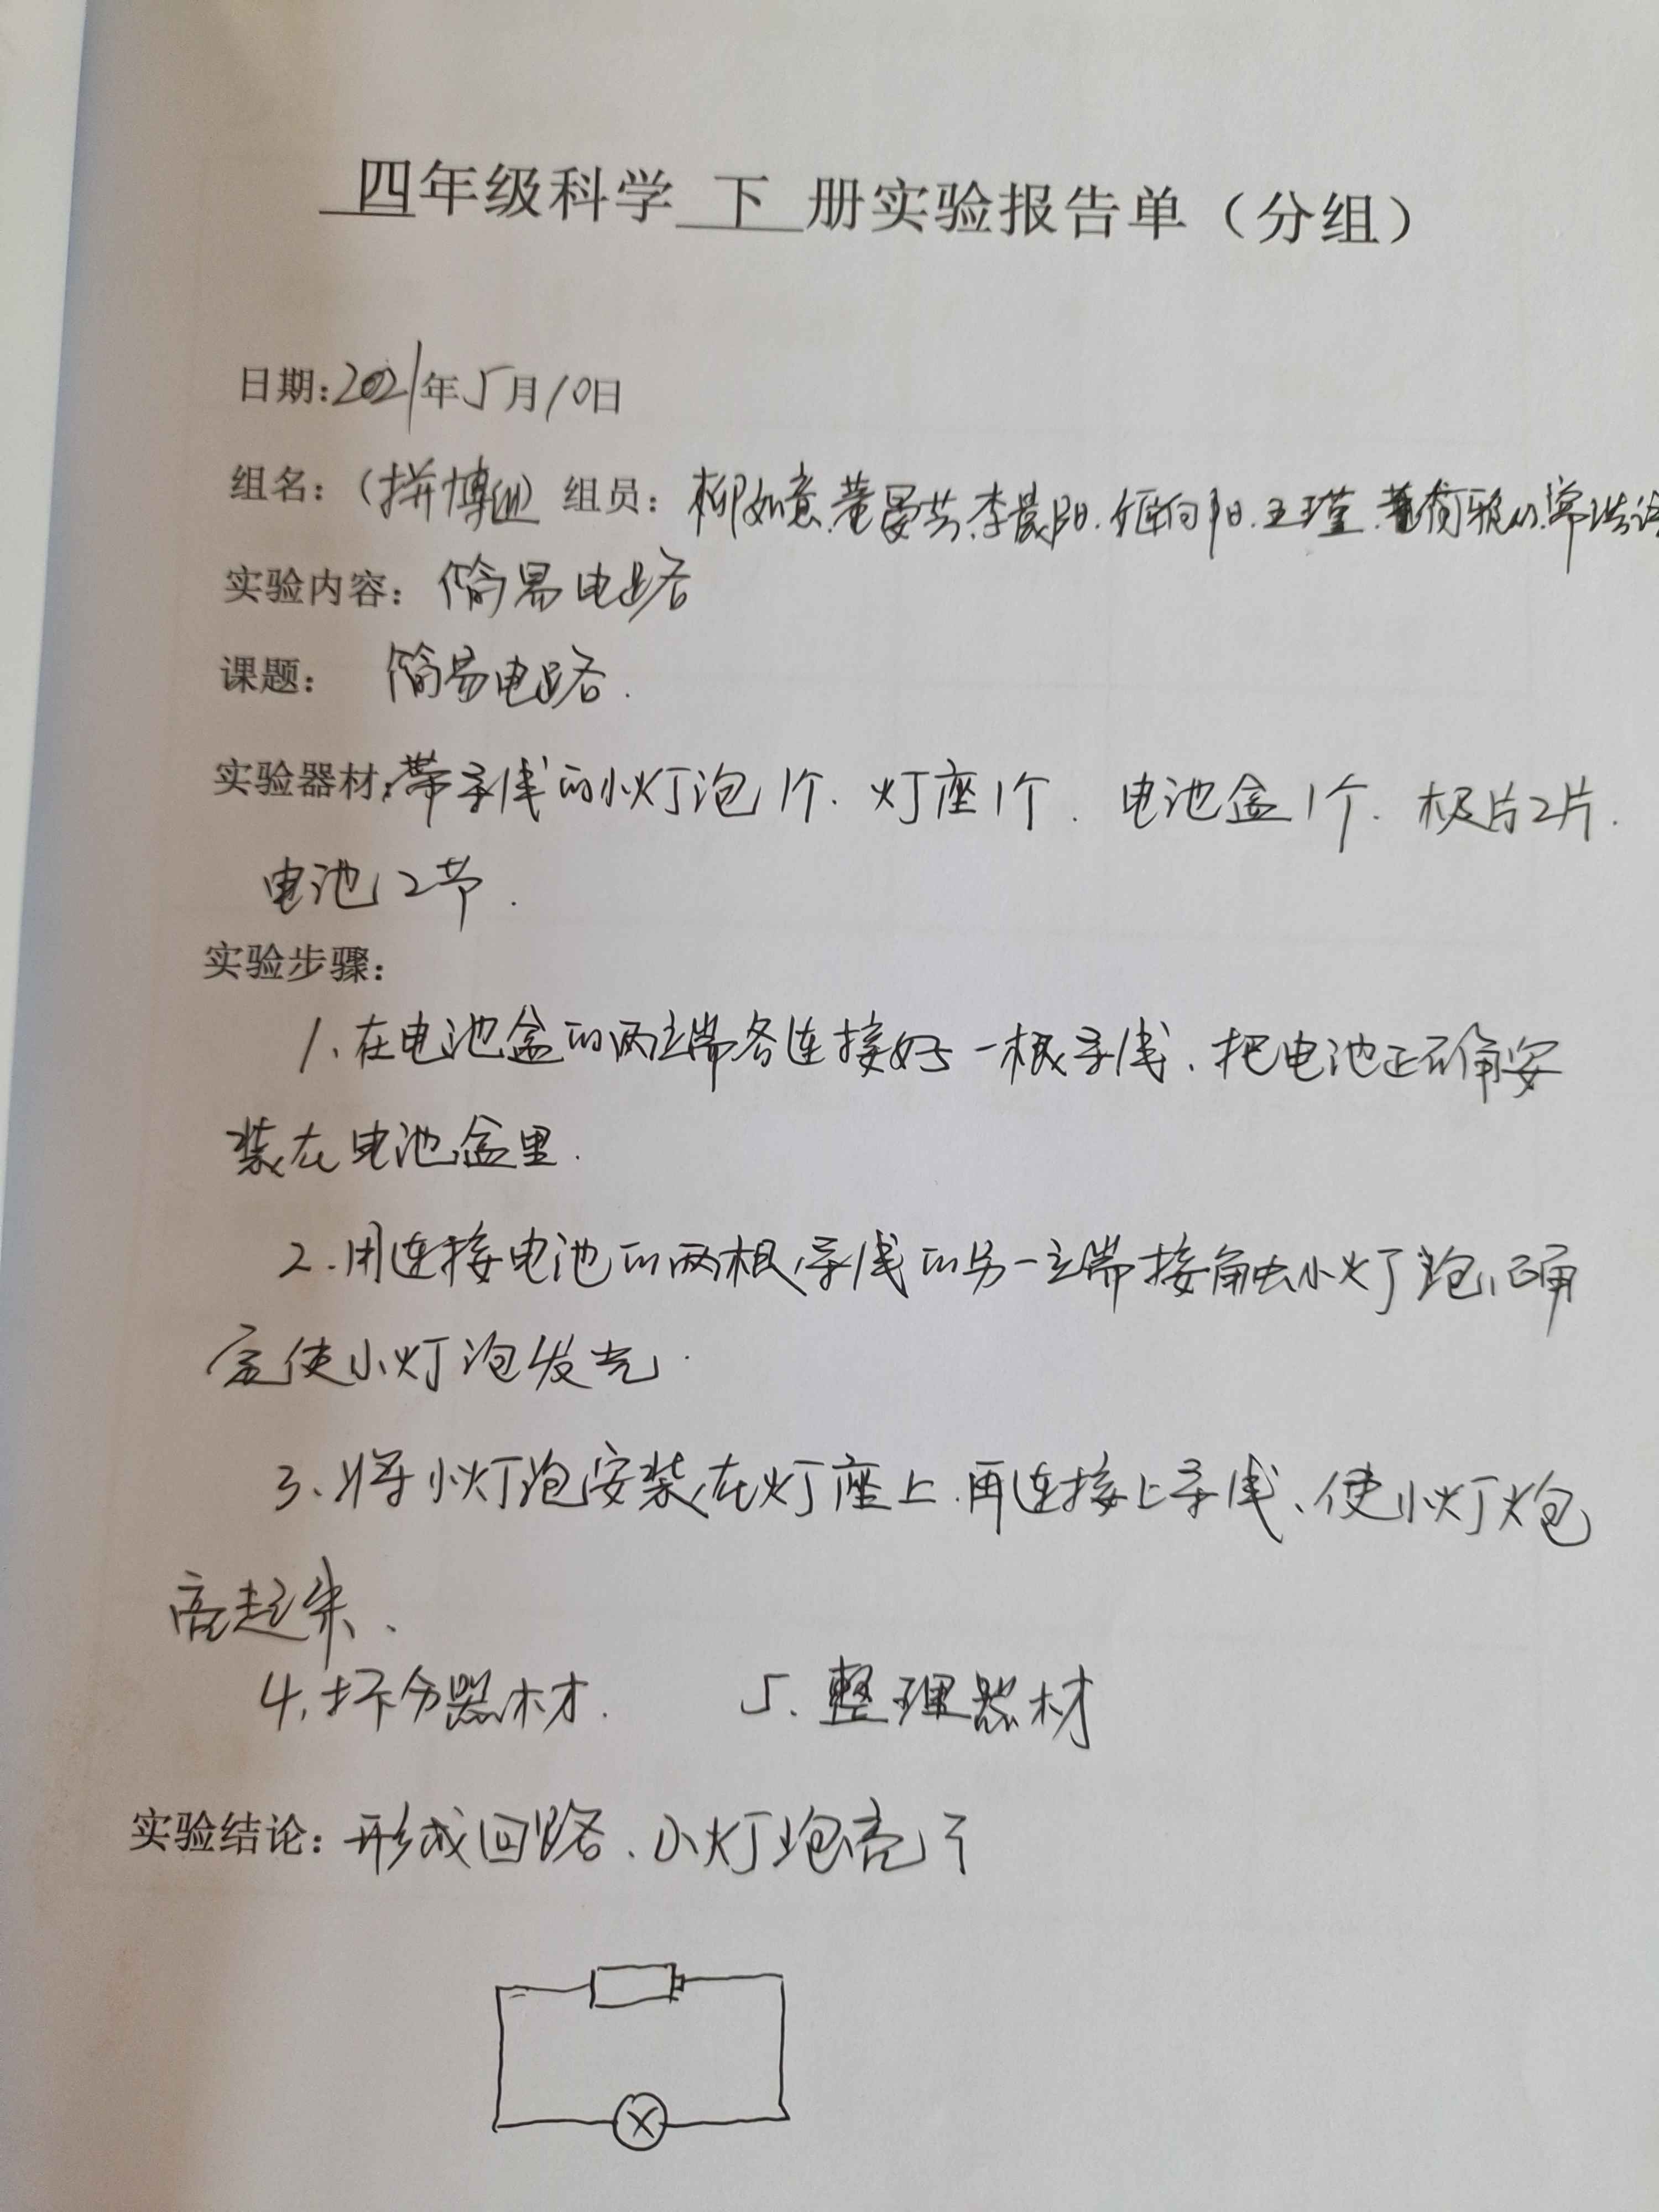 四年级科学 下 册实验报告单（分组）
日期：2021年5月10日
组名：（拼搏组）组员：柳如意、董晏芸、李晨阳、何向阳、王瑾、
实验内容：简易电路
课题： 简易电路.
实验器材：带导线的小灯泡1个、灯座1个、电池盒1个、极片2片.
电池2节.
实验步骤：
1、在电池盒的两端各连接好一根导线、把电池正确安
装在电池盒里.
2.用连接电池的两根导线的另一端接触小灯泡,确
定使小灯泡发光.
3、将小灯泡安装在灯座上.再连接上导线、使小灯炮
亮起来、
4、拆分器材. 5、整理器材
实验结论：形成回路、小灯炮亮了